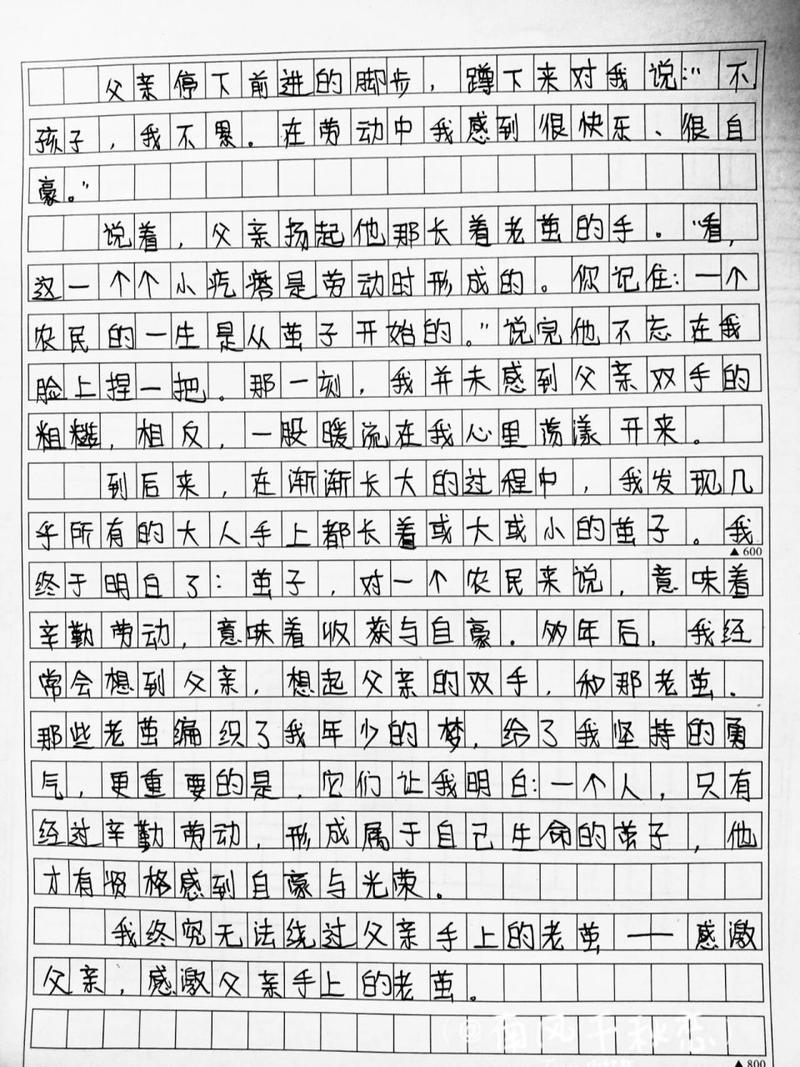 父亲停下前进的脚步，蹲下来对我说：“不
孩子，我不累。在劳动中我感到很快乐、很自
豪。”
说着，父亲扬起他那长着老茧的手。“看，
这一个个小疙瘩是劳动时形成的。你记住：一个
农民的一生是从茧子开始的。”说完他不忘在我
脸上捏一把。那一刻，我并未感到父亲双手的
粗糙，相反，一股暖流在我心里荡漾开来。
到后来，在渐渐长大的过程中，我发现几
乎所有的大人手上都长着或大或小的茧子。我
▲600
终于明白了：茧子，对一个农民来说，意味着
辛勤劳动，意味着收获与自豪。多年后，我经
常会想到父亲，想起父亲的双手，和那老茧.
那些老茧编织了我年少的梦，给了我坚持的勇
气，更重要的是，它们让我明白：一个人，只有
经过辛勤劳动，形成属于自己生命的茧子，他
才有资格感到自豪与光荣。
我终究无法绕过父亲手上的老茧——感激
父亲，感激父亲手上的老茧。
@南风千秋恋
▲800